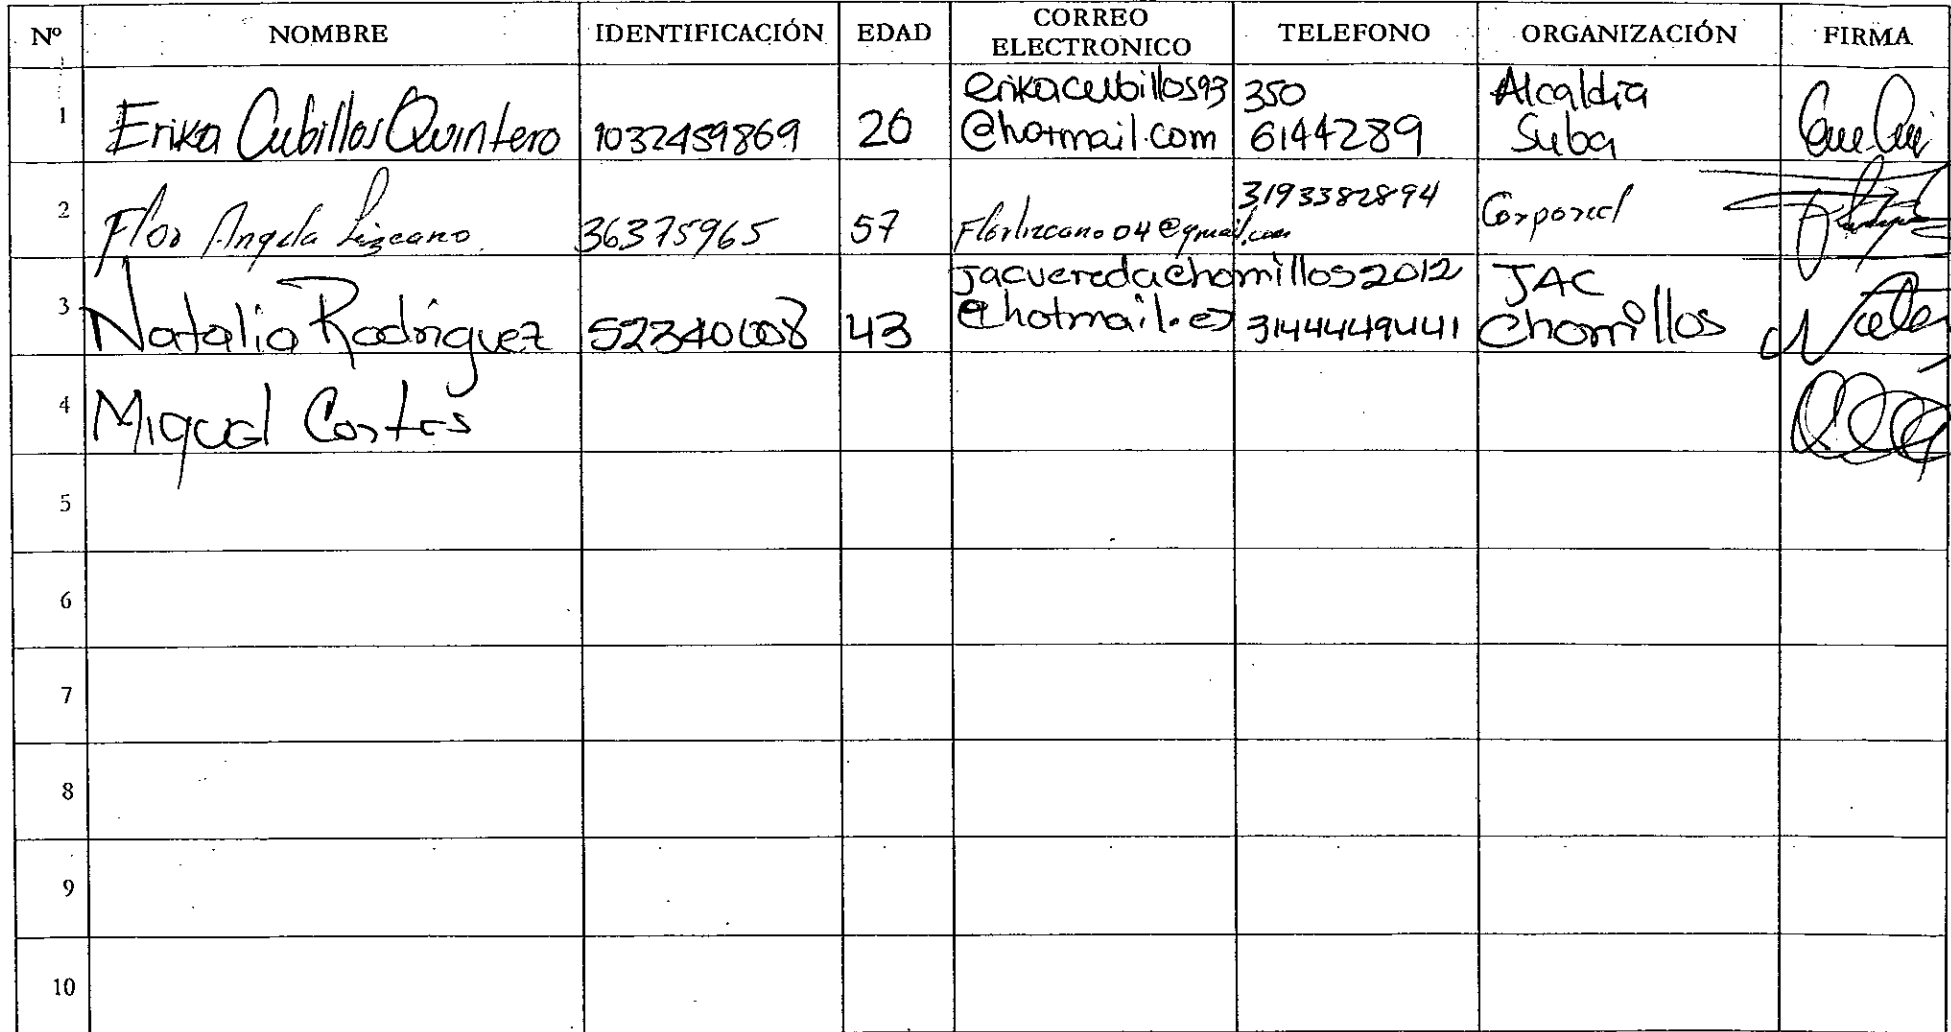 Nº NOMBRE IDENTIFICACIÓN EDAD CORREO ELECTRONICO TELEFONO ORGANIZACIÓN FIRMA
1 Erika Cubillos Quintero 1032459869 26 erikacubillos93 @hotmail.com 350 6144289 Alcaldia Suba
2 Flor Angela Lizcano 36375965 57 Florlizcano04@gmail.com 3193382894 Corporeal
3 Natalia Rodriguez 52340008 43 jacveredachorrillos2012 @hotmail.es 3144449441 JAC Chorrillos
4 Miguel Cortes
5
6
7
8
9
10